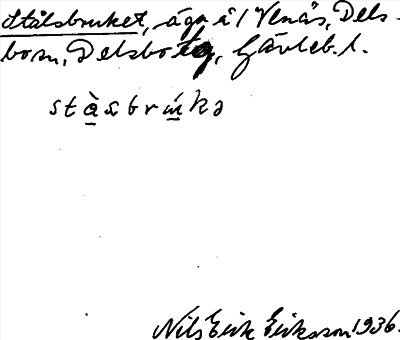 Stålsbruket, äga å/ Venås, Dels-
bo sn, Delsbo tg, Gävleb. l.
stàsbrúkə
Nils Erik Eriksson 1936.